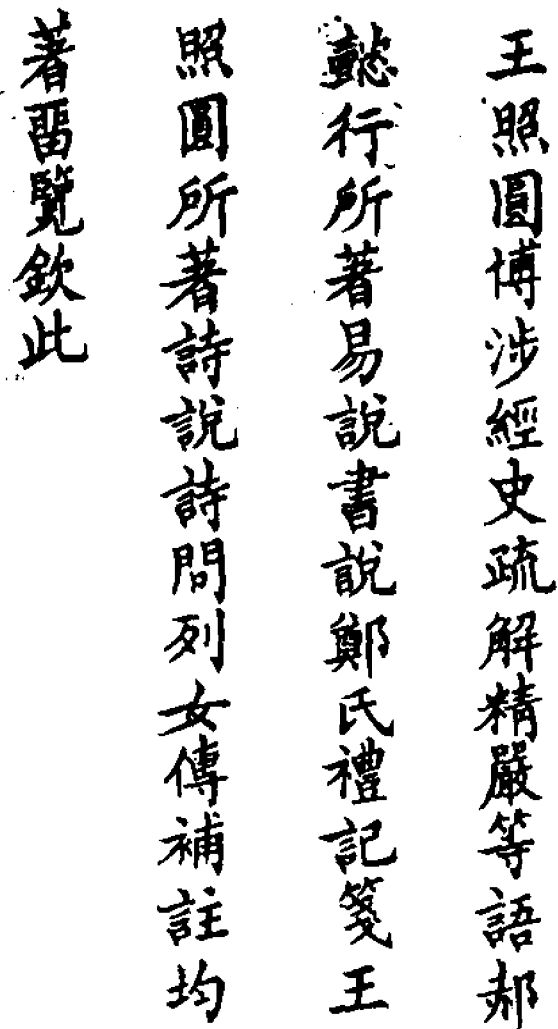 王照圓博涉經史疏解精嚴等語郝
懿行所著易說書說鄭氏禮記箋王
照圓所著詩說詩問列女傳補註均
著畱覽欽此